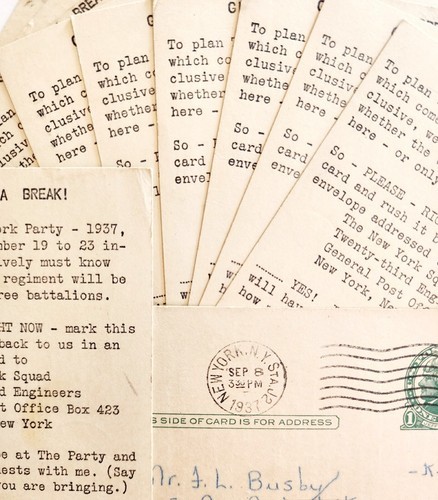 BREA
To plan
which com
clusiv
whethe
here -
To plan
which come
clusive
whether
here -
So -
card
envel
To plan
which com
clusive,
whether
here -
So -
card
envel
To plan
which co
clusive
whether
here -
So -
card
envelo
To plan
which com
clusive
whether
here
So -
card
envel
To plan
which come
clusive, we
whether the
here - or only
So - PLEASE - RI
card and rush it
envelope addressed
The New York Sq
Twenty-third Eng
General Post Off
New York, Ne
YES!
will hav
how
A BREAK!
ork Party - 1937,
mber 19 to 23 in-
ively must know
regiment will be
ree battalions.
HT NOW - mark this
back to us in an
d to
k Squad
d Engineers
t Office Box 423
ew York
be at The Party and
ests with me. (Say
you are bringing.)
NEW YORK, N.Y. STA.
SEP 8
3:30 PM
1937
1
S SIDE OF CARD IS FOR ADDRESS
Mr. F. L. Busby